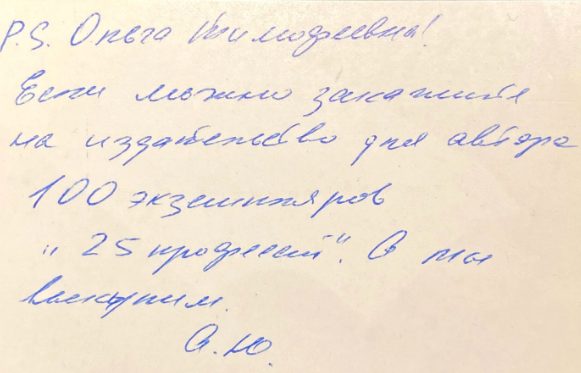 P.S. Ольга Тимофеевна!
Если можно закажите
на издательство для автора
100 экземпляров
„25 профессий". А мы
выкупим.
А.Ю.